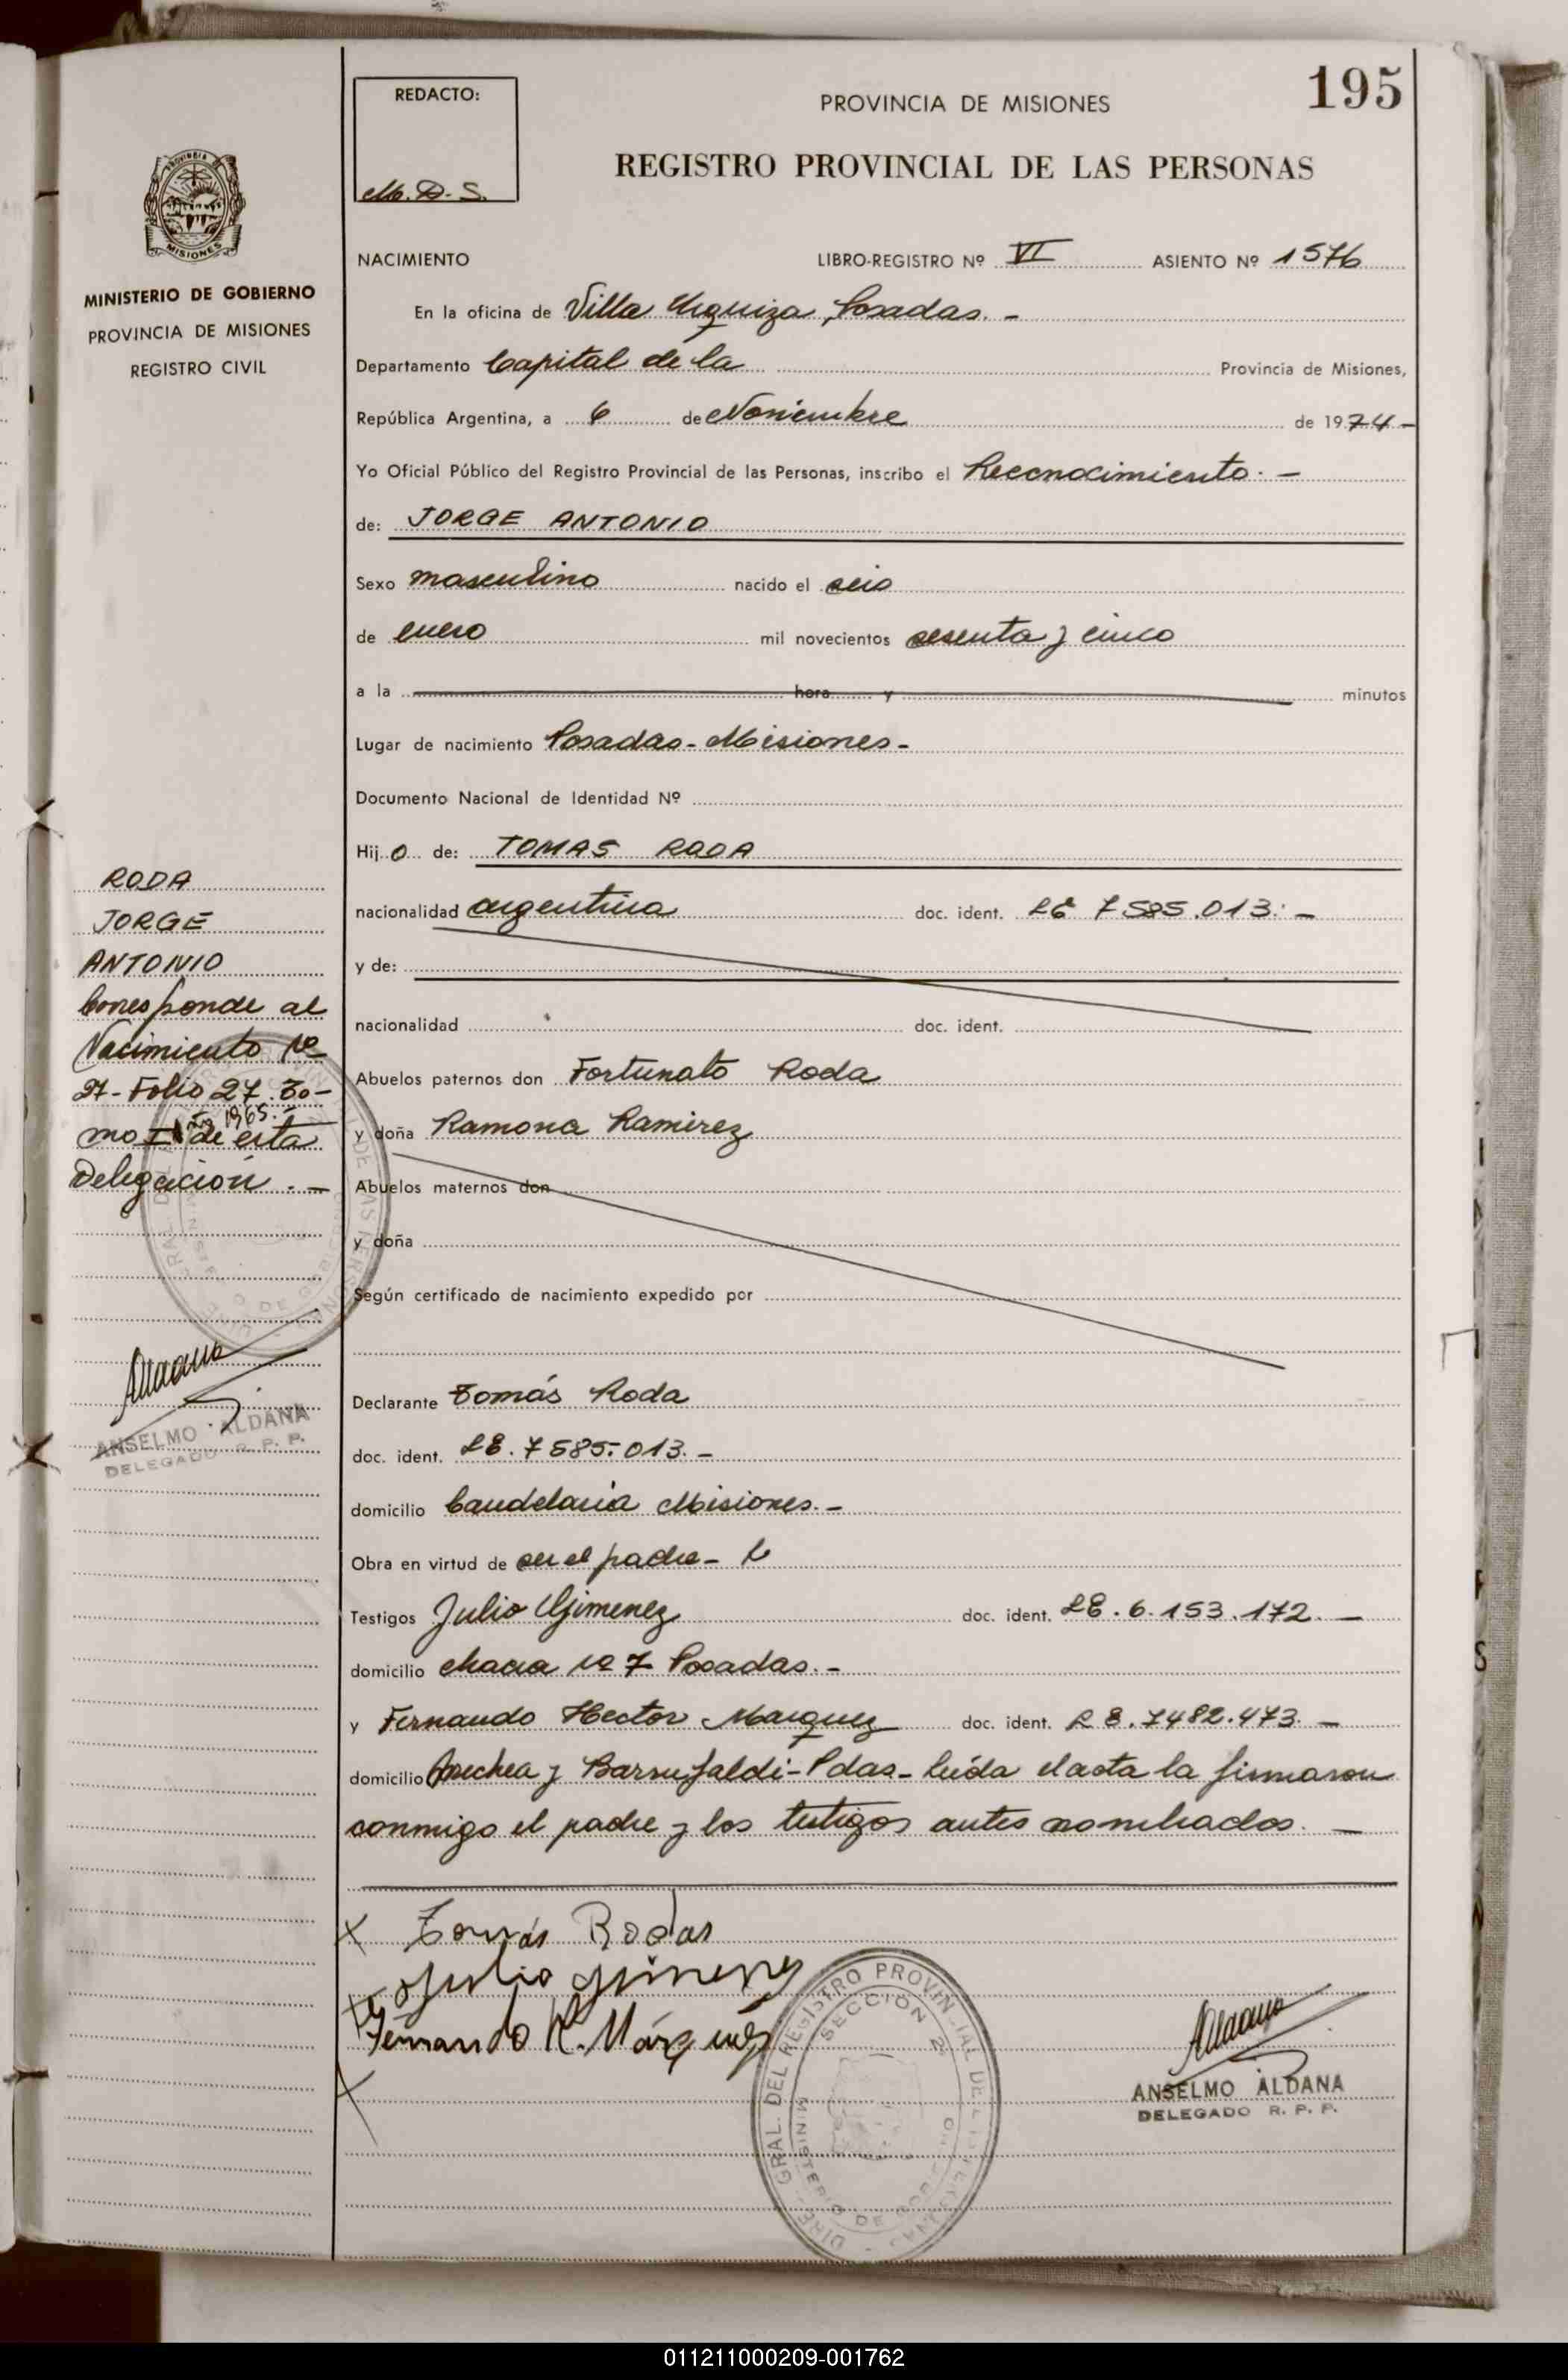 195
REDACTO:
M. D. S.
PROVINCIA DE MISIONES
REGISTRO PROVINCIAL DE LAS PERSONAS
MISIONES
MINISTERIO DE GOBIERNO
PROVINCIA DE MISIONES
REGISTRO CIVIL
NACIMIENTO LIBRO-REGISTRO Nº VI ASIENTO Nº 1576
En la oficina de Villa Urquiza, Posadas. -
Departamento Capital de la Provincia de Misiones,
República Argentina, a 6 de Noviembre de 1974-
Yo Oficial Público del Registro Provincial de las Personas, inscribo el Reconocimiento. -
de: JORGE ANTONIO
Sexo masculino nacido el seis
de enero mil novecientos sesenta y cinco
a la hora y minutos
Lugar de nacimiento Posadas - Misiones -
Documento Nacional de Identidad Nº
Hijo de: TOMAS RODA
nacionalidad argentina doc. ident. LE 7585.013. -
y de:
nacionalidad doc. ident.
Abuelos paternos don Fortunato Roda
y doña Ramona Ramirez
Abuelos maternos don
y doña
Según certificado de nacimiento expedido por
Declarante Tomás Roda
doc. ident. LE. 7585.013. -
domicilio Candelaria Misiones. -
Obra en virtud de ser el padre -
Testigos Julio Gimenez doc. ident. LE. 6.153.172. -
domicilio chacra Nº 7 Posadas. -
y Fernando Hector Marquez doc. ident. LE. 7482.473. -
domicilio y Barrufaldi - Pdas - leída el acta la firmaron
conmigo el padre y los testigos antes nombrados. -
RODA
JORGE
ANTONIO
Corresponde al
Nacimiento Nº
27 - Folio 27. To-
mo I de esta
Año 1965.
Delegación. -
ANSELMO ALDANA
DELEGADO R. P. P.
Tomás Rodas
Julio Gimenez
Fernando H. Márquez
DIREC. GRAL. DEL REGISTRO PROVINCIAL DE LAS PERSONAS
SECCION 2
MINISTERIO DE GOBIERNO
ANSELMO ALDANA
DELEGADO R. P. P.
011211000209-001762